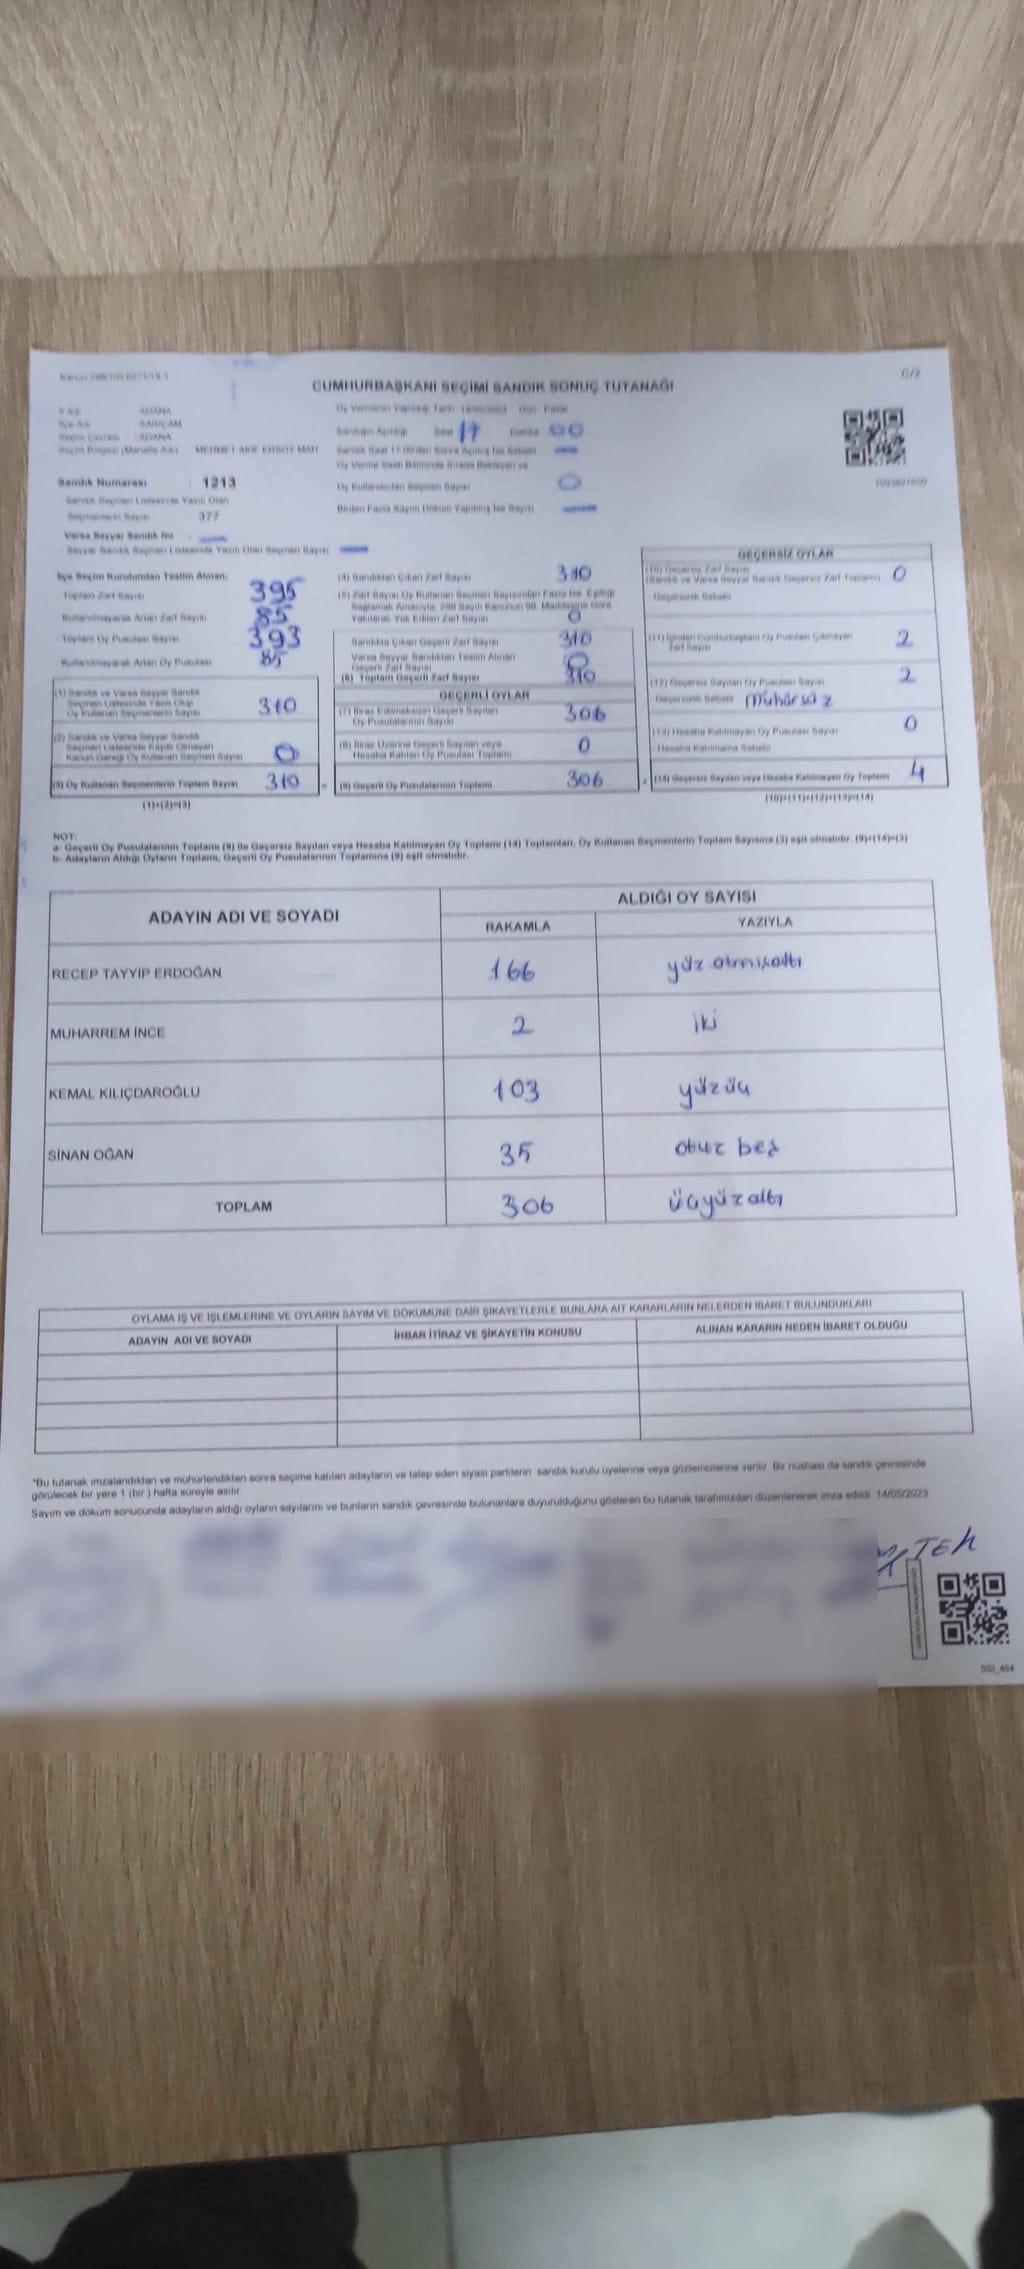 C/2
CUMHURBAŞKANI SEÇİMİ SANDIK SONUÇ TUTANAĞI
İl Adı ADANA
İlçe Adı SARIÇAM
Seçim Çevresi ADANA
Seçim Bölgesi (Mahalle Adı) MEHMET AKİF ERSOY MAH
Sandık Numarası : 1213
Sandık Seçmen Listesinde Yazılı Olan
Seçmenlerin Sayısı 377
Varsa Seyyar Sandık No
Seyyar Sandık Seçmen Listesinde Yazılı Olan Seçmen Sayısı
Oy Vermenin Yapıldığı Tarih 14/05/2023 Gün Pazar
Sandığın Açıldığı Saat 17 Dakika 00
Oy Kullandırılan Seçmen Sayısı 0
Birden Fazla Sayım Döküm Yapılmış İse Sayısı
İlçe Seçim Kurulundan Teslim Alınan;
Toplam Zarf Sayısı 395
Kullanılmayarak Artan Zarf Sayısı 85
Toplam Oy Pusulası Sayısı 393
Kullanılmayarak Artan Oy Pusulası 85
(1) Sandık ve Varsa Seyyar Sandık
Seçmen Listesinde Yazılı Olup
Oy Kullanan Seçmenlerin Sayısı 310
(2) Sandık ve Varsa Seyyar Sandık
Seçmen Listesinde Kayıtlı Olmayan
Kanun Gereği Oy Kullanan Seçmen Sayısı 0
(3) Oy Kullanan Seçmenlerin Toplam Sayısı 310
(1)+(2)=(3)
(4) Sandıktan Çıkan Zarf Sayısı 310
(5) Zarf Sayısı Oy Kullanan Seçmen Sayısından Fazla İse, Eşitliği
Sağlamak Amacıyla, 298 Sayılı Kanunun 98. Maddesine Göre
Yakılarak Yok Edilen Zarf Sayısı 0
Sandıkta Çıkan Geçerli Zarf Sayısı 310
Varsa Seyyar Sandıktan Teslim Alınan
Geçerli Zarf Sayısı 0
(6) Toplam Geçerli Zarf Sayısı 310
GEÇERLİ OYLAR
(7) İtiraz Edilmeksizin Geçerli Sayılan
Oy Pusulalarının Sayısı 306
(8) İtiraz Üzerine Geçerli Sayılan veya
Hesaba Katılan Oy Pusulası Toplamı 0
(9) Geçerli Oy Pusulalarının Toplamı 306
GEÇERSİZ OYLAR
(10) Geçersiz Zarf Sayısı
(Sandık ve Varsa Seyyar Sandık Geçersiz Zarf Toplamı) 0
Geçersizlik Sebebi
(11) İçinden Cumhurbaşkanı Oy Pusulası Çıkmayan
Zarf Sayısı 2
(12) Geçersiz Sayılan Oy Pusulası Sayısı 2
Geçersizlik Sebebi mühürsüz
(13) Hesaba Katılmayan Oy Pusulası Sayısı 0
Hesaba Katılmama Sebebi
(14) Geçersiz Sayılan veya Hesaba Katılmayan Oy Toplamı 4
(10)+(11)+(12)+(13)=(14)
NOT:
a- Geçerli Oy Pusulalarının Toplamı (9) ile Geçersiz Sayılan veya Hesaba Katılmayan Oy Toplamı (14) Toplamları, Oy Kullanan Seçmenlerin Toplam Sayısına (3) eşit olmalıdır. (9)+(14)=(3)
b- Adayların Aldığı Oyların Toplamı, Geçerli Oy Pusulalarının Toplamına (9) eşit olmalıdır.
ADAYIN ADI VE SOYADI ALDIĞI OY SAYISI
RAKAMLA YAZIYLA
RECEP TAYYİP ERDOĞAN 166 yüz atmışaltı
MUHARREM İNCE 2 iki
KEMAL KILIÇDAROĞLU 103 yüzüç
SİNAN OĞAN 35 otuz beş
TOPLAM 306 üçyüzaltı
OYLAMA İŞ VE İŞLEMLERİNE VE OYLARIN SAYIM VE DÖKÜMÜNE DAİR ŞİKAYETLERLE BUNLARA AİT KARARLARIN NELERDEN İBARET BULUNDUKLARI
ADAYIN ADI VE SOYADI İHBAR İTİRAZ VE ŞİKAYETİN KONUSU ALINAN KARARIN NEDEN İBARET OLDUĞU
*Bu tutanak imzalandıktan ve mühürlendikten sonra seçime katılan adayların ve talep eden siyasi partilerin sandık kurulu üyelerine veya gözlemcilerine verilir. Bir nüshası da sandık çevresinde
görülecek bir yere 1 (bir) hafta süreyle asılır.
Sayım ve döküm sonucunda adayların aldığı oyların sayılarını ve bunların sandık çevresinde bulunanlara duyurulduğunu gösteren bu tutanak tarafımızdan düzenlenerek imza edildi. 14/05/2023